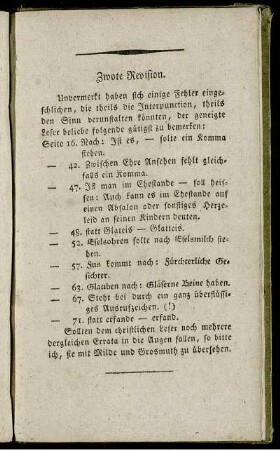 Zwote Revision.
Unvermerkt haben sich einige Fehler einge-
schlichen, die theils die Interpunction, theils
den Sinn verunstalten könnten, der geneigte
Leser beliebe folgende gütigst zu bemerken:
Seite 16. Nach: Ist es, — sollte ein Komma
stehen.
— 42. Zwischen Ehre Ansehen fehlt gleich-
falls ein Komma.
— 47. Ist man im Ehestande — soll heis-
sen: Auch kann es im Ehestande auf
einen Absalon oder sonstiges Herze-
leid an seinen Kindern deuten.
— 48. statt Glateis — Glatteis.
— 52. Eselsohren sollte nach Eselsmilch ste-
hen.
— 57. Fus kommt nach: Fürchterliche Ge-
sichter.
— 63. Glauben nach: Gläserne Beine haben.
— 67. Steht bei durch ein ganz überflüssi-
ges Ausrufzeichen. (!)
— 71. statt erfande — erfand.
Sollten dem christlichen Leser noch mehrere
dergleichen Errata in die Augen fallen, so bitte
ich, sie mit Milde und Grosmuth zu übersehen.